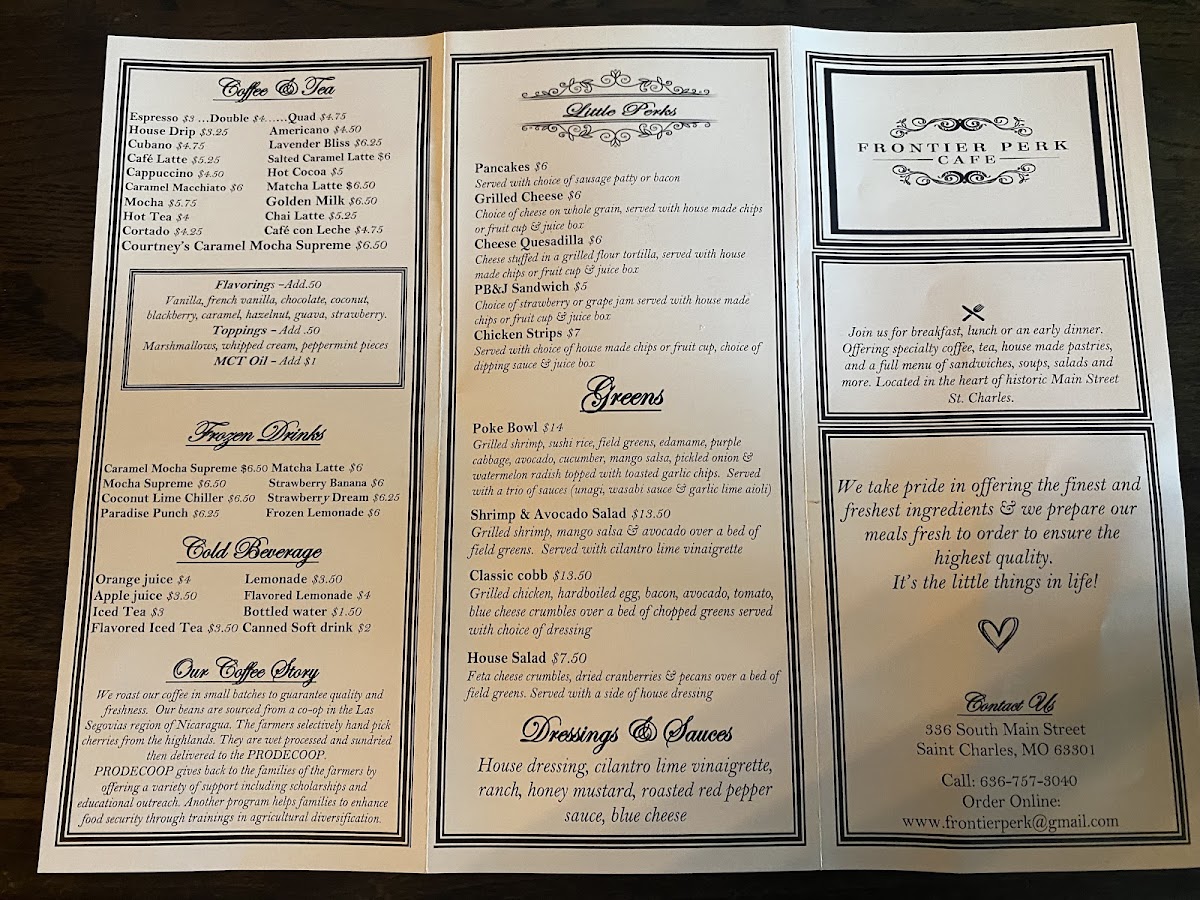 Coffee & Tea
Espresso $3 ...Double $4......Quad $4.75
House Drip $3.25 Americano $4.50
Cubano $4.75 Lavender Bliss $6.25
Café Latte $5.25 Salted Caramel Latte $6
Cappuccino $4.50 Hot Cocoa $5
Caramel Macchiato $6 Matcha Latte $6.50
Mocha $5.75 Golden Milk $6.50
Hot Tea $4 Chai Latte $5.25
Cortado $4.25 Café con Leche $4.75
Courtney's Caramel Mocha Supreme $6.50
Flavorings –Add.50
Vanilla, french vanilla, chocolate, coconut,
blackberry, caramel, hazelnut, guava, strawberry.
Toppings – Add .50
Marshmallows, whipped cream, peppermint pieces
MCT Oil – Add $1
Frozen Drinks
Caramel Mocha Supreme $6.50 Matcha Latte $6
Mocha Supreme $6.50 Strawberry Banana $6
Coconut Lime Chiller $6.50 Strawberry Dream $6.25
Paradise Punch $6.25 Frozen Lemonade $6
Cold Beverage
Orange juice $4 Lemonade $3.50
Apple juice $3.50 Flavored Lemonade $4
Iced Tea $3 Bottled water $1.50
Flavored Iced Tea $3.50 Canned Soft drink $2
Our Coffee Story
We roast our coffee in small batches to guarantee quality and
freshness. Our beans are sourced from a co-op in the Las
Segovias region of Nicaragua. The farmers selectively hand pick
cherries from the highlands. They are wet processed and sundried
then delivered to the PRODECOOP.
PRODECOOP gives back to the families of the farmers by
offering a variety of support including scholarships and
educational outreach. Another program helps families to enhance
food security through trainings in agricultural diversification.
Little Perks
Pancakes $6
Served with choice of sausage patty or bacon
Grilled Cheese $6
Choice of cheese on whole grain, served with house made chips
or fruit cup & juice box
Cheese Quesadilla $6
Cheese stuffed in a grilled flour tortilla, served with house
made chips or fruit cup & juice box
PB&J Sandwich $5
Choice of strawberry or grape jam served with house made
chips or fruit cup & juice box
Chicken Strips $7
Served with choice of house made chips or fruit cup, choice of
dipping sauce & juice box
Greens
Poke Bowl $14
Grilled shrimp, sushi rice, field greens, edamame, purple
cabbage, avocado, cucumber, mango salsa, pickled onion &
watermelon radish topped with toasted garlic chips. Served
with a trio of sauces (unagi, wasabi sauce & garlic lime aioli)
Shrimp & Avocado Salad $13.50
Grilled shrimp, mango salsa & avocado over a bed of
field greens. Served with cilantro lime vinaigrette
Classic cobb $13.50
Grilled chicken, hardboiled egg, bacon, avocado, tomato,
blue cheese crumbles over a bed of chopped greens served
with choice of dressing
House Salad $7.50
Feta cheese crumbles, dried cranberries & pecans over a bed of
field greens. Served with a side of house dressing
Dressings & Sauces
House dressing, cilantro lime vinaigrette,
ranch, honey mustard, roasted red pepper
sauce, blue cheese
FRONTIER PERK
CAFE
Join us for breakfast, lunch or an early dinner.
Offering specialty coffee, tea, house made pastries,
and a full menu of sandwiches, soups, salads and
more. Located in the heart of historic Main Street
St. Charles.
We take pride in offering the finest and
freshest ingredients & we prepare our
meals fresh to order to ensure the
highest quality.
It's the little things in life!
Contact Us
336 South Main Street
Saint Charles, MO 63301
Call: 636-757-3040
Order Online:
www.frontierperk@gmail.com